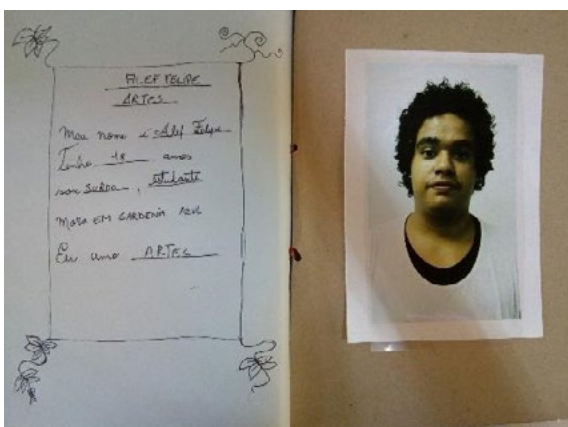 ALEF FELIPE
ARTES
Meu nome é Alef Felipe
Tenho 18 anos
sou SURDO, estudante
MORA EM GARDENIA AZUL
Eu amo ARTES